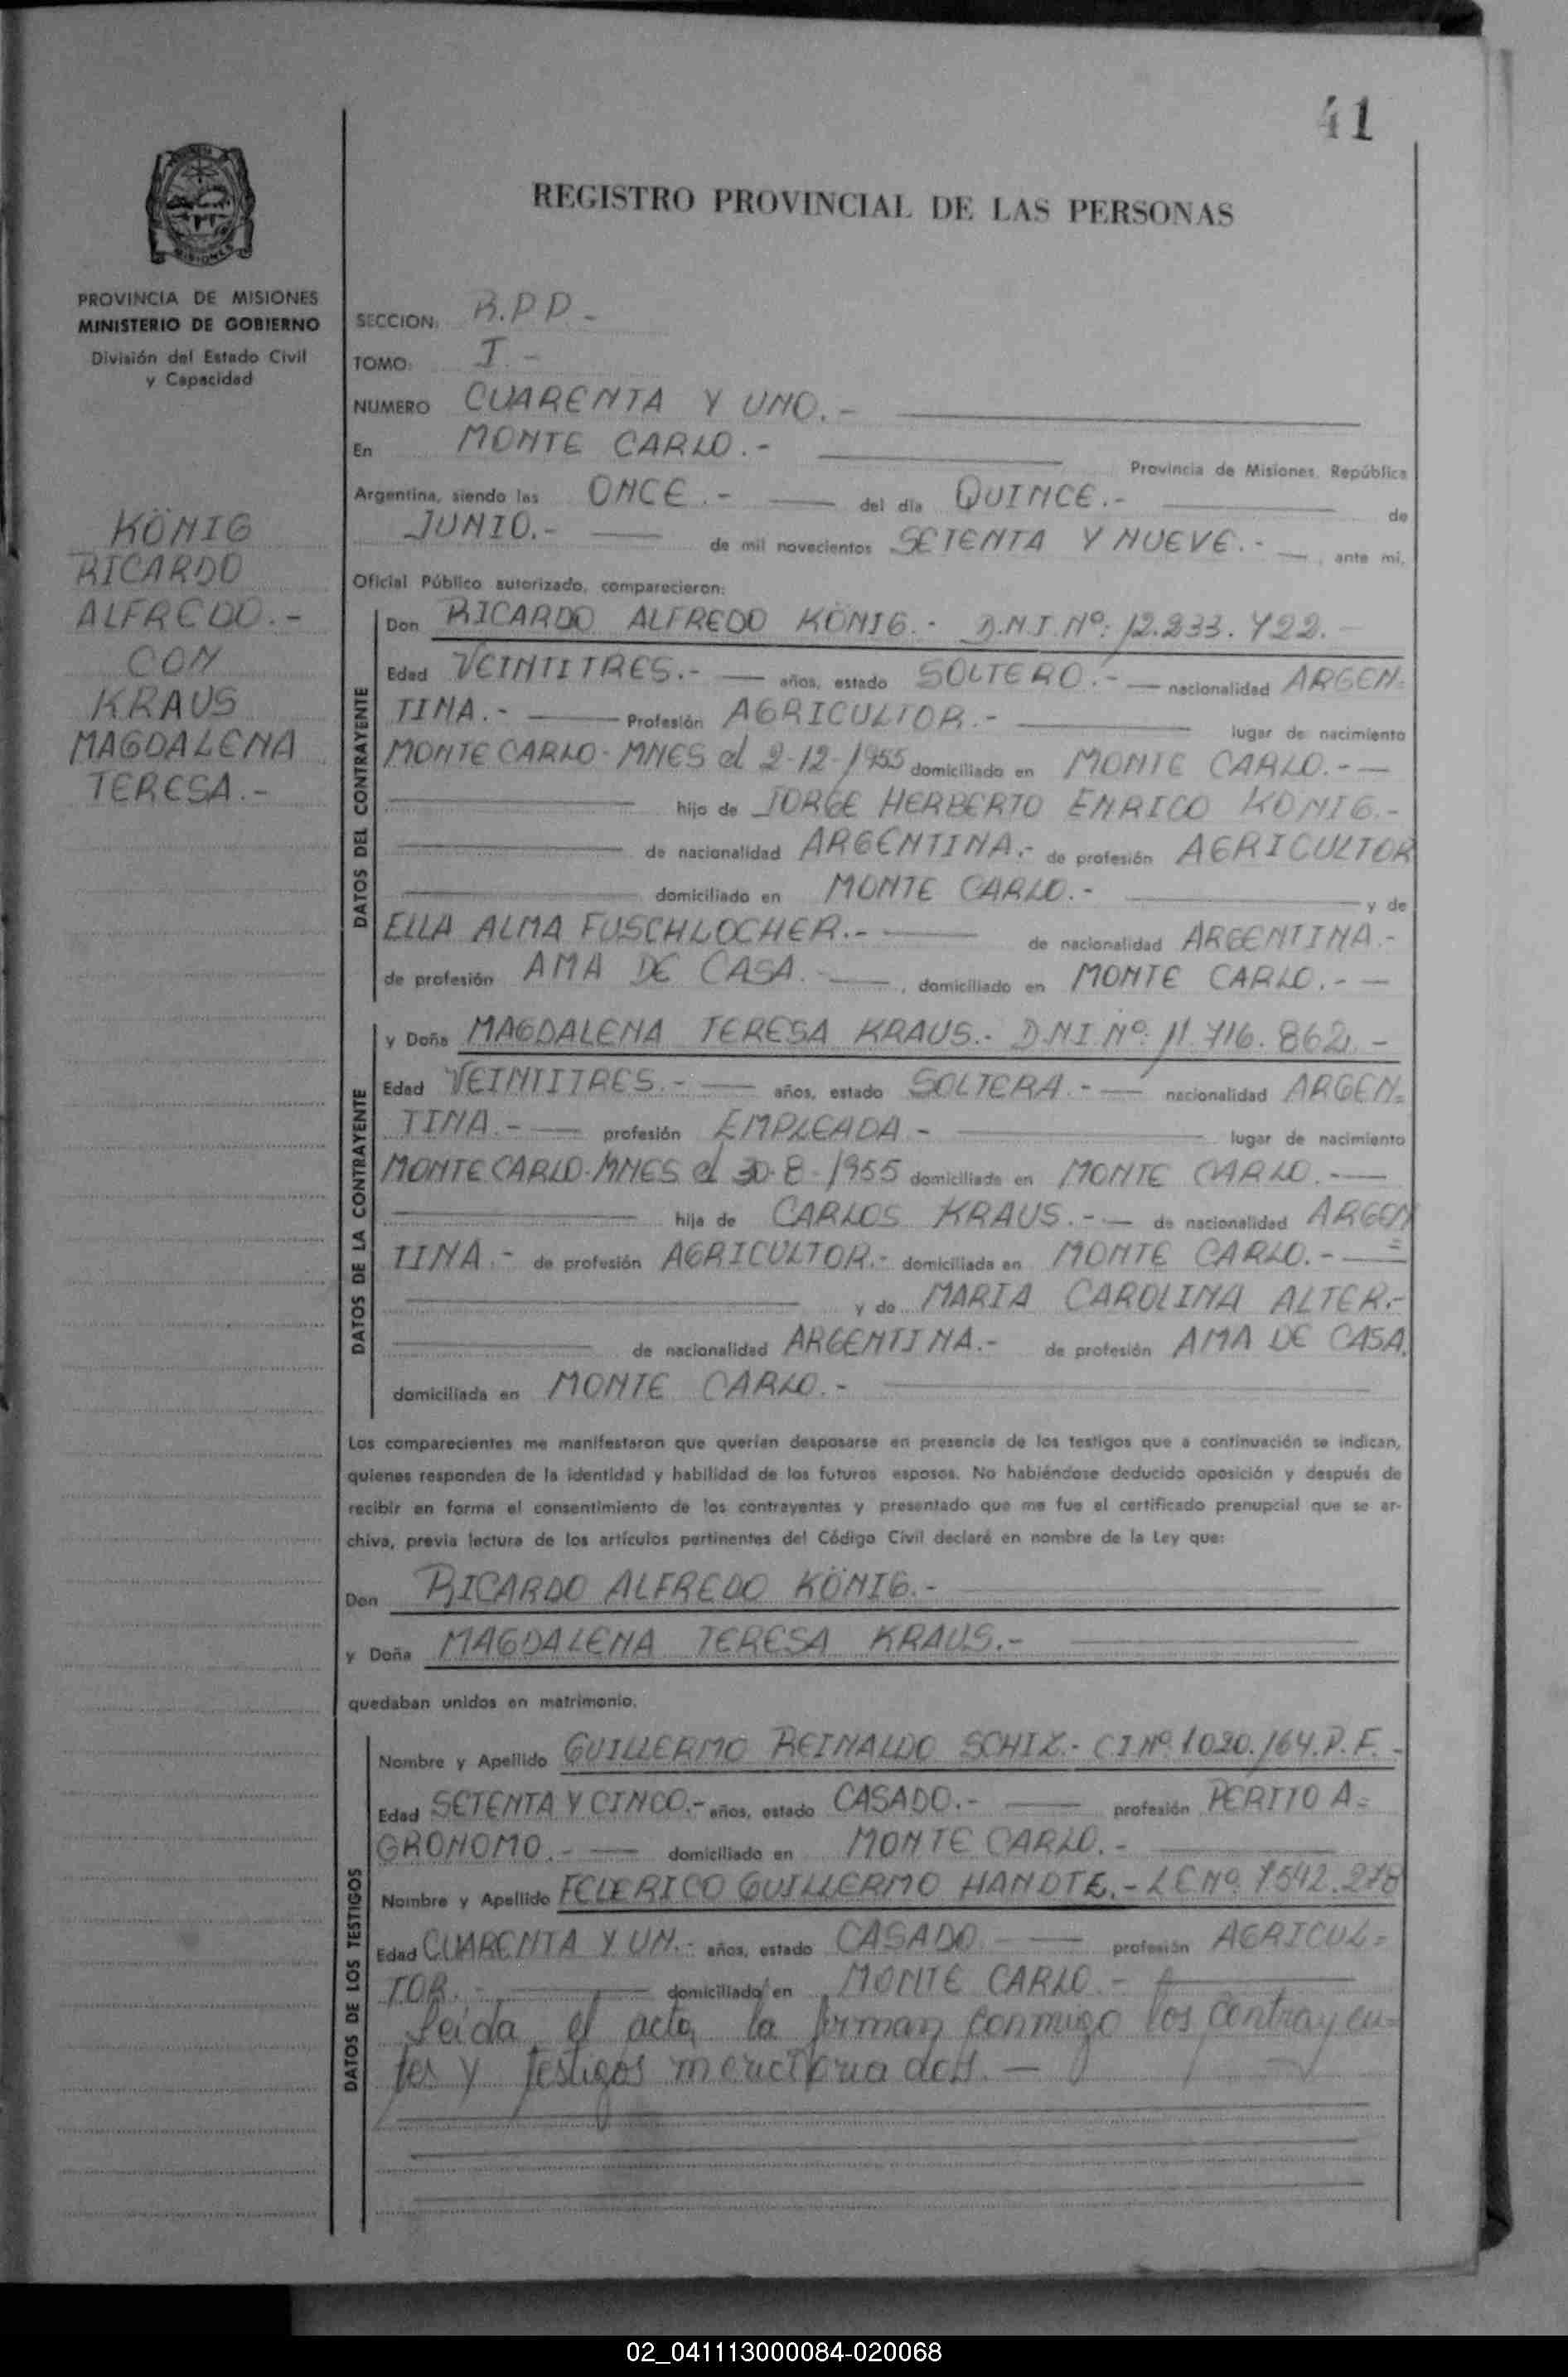 41
REGISTRO PROVINCIAL DE LAS PERSONAS
PROVINCIA DE MISIONES
MINISTERIO DE GOBIERNO
División del Estado Civil
y Capacidad
KÖNIG
RICARDO
ALFREDO.-
CON
KRAUS
MAGDALENA
TERESA.-
SECCION: R.P.P.-
TOMO: I.-
NUMERO CUARENTA Y UNO.-
En MONTE CARLO.- Provincia de Misiones, República
Argentina, siendo las ONCE.- del día QUINCE.- de
JUNIO.- de mil novecientos SETENTA Y NUEVE.- , ante mi,
Oficial Público autorizado, comparecieron:
DATOS DEL CONTRAYENTE
Don RICARDO ALFREDO KÖNIG.- D.N.I.Nº: 12.233.422.-
Edad VEINTITRES.- años, estado SOLTERO.- nacionalidad ARGEN=
TINA.- Profesión AGRICULTOR.- lugar de nacimiento
MONTE CARLO-MNES el 2-12-1955 domiciliado en MONTE CARLO.-
hijo de JORGE HERBERTO ENRICO KONIG.-
de nacionalidad ARGENTINA.- de profesión AGRICULTOR
domiciliado en MONTE CARLO.- y de
ELLA ALMA FUSCHLOCHER.- de nacionalidad ARGENTINA.-
de profesión AMA DE CASA.- , domiciliado en MONTE CARLO.-
DATOS DE LA CONTRAYENTE
y Doña MAGDALENA TERESA KRAUS.- D.N.I.Nº: 11.716.862.-
Edad VEINTITRES.- años, estado SOLTERA.- nacionalidad ARGEN=
TINA.- profesión EMPLEADA.- lugar de nacimiento
MONTE CARLO-MNES el 30-8-1955 domiciliada en MONTE CARLO.-
hija de CARLOS KRAUS.- de nacionalidad ARGEN=
TINA.- de profesión AGRICULTOR.- domiciliada en MONTE CARLO.-
y de MARIA CAROLINA ALTER.-
de nacionalidad ARGENTINA.- de profesión AMA DE CASA.
domiciliada en MONTE CARLO.-
Los comparecientes me manifestaron que querían desposarse en presencia de los testigos que a continuación se indican,
quienes responden de la identidad y habilidad de los futuros esposos. No habiéndose deducido oposición y después de
recibir en forma el consentimiento de los contrayentes y presentado que me fue el certificado prenupcial que se ar-
chiva, previa lectura de los artículos pertinentes del Código Civil declaré en nombre de la Ley que:
Don RICARDO ALFREDO KÖNIG.-
y Doña MAGDALENA TERESA KRAUS.-
quedaban unidos en matrimonio.
DATOS DE LOS TESTIGOS
Nombre y Apellido GUILLERMO REINALDO CI Nº 1020.164.P.F.-
Edad SETENTA Y CINCO.- años, estado CASADO.- profesión PERITO A=
GRONOMO.- domiciliado en MONTE CARLO.-
Nombre y Apellido FEDERICO GUILLERMO HANDTE.- LE Nº 7542.278
Edad CUARENTA Y UN.- años, estado CASADO.- profesión AGRICUL=
TOR.- domiciliado en MONTE CARLO.-
Leida el acta, la firman conmigo los contrayen=
tes y testigos
02_041113000084-020068